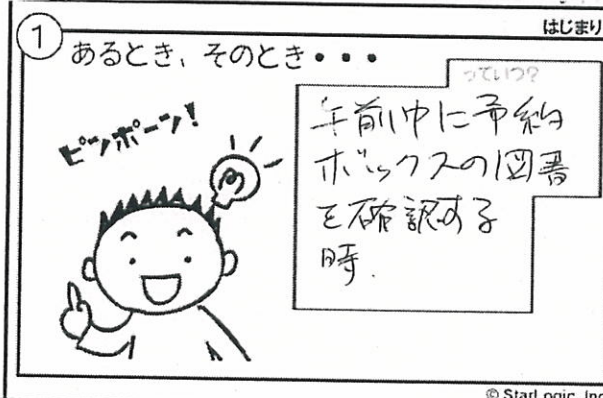 はじまり
① あるとき、そのとき・・・
っていつ?
ピンポーン!
午前中に予約
ボックスの図書
を確認する
時.
© StarLogic, Inc